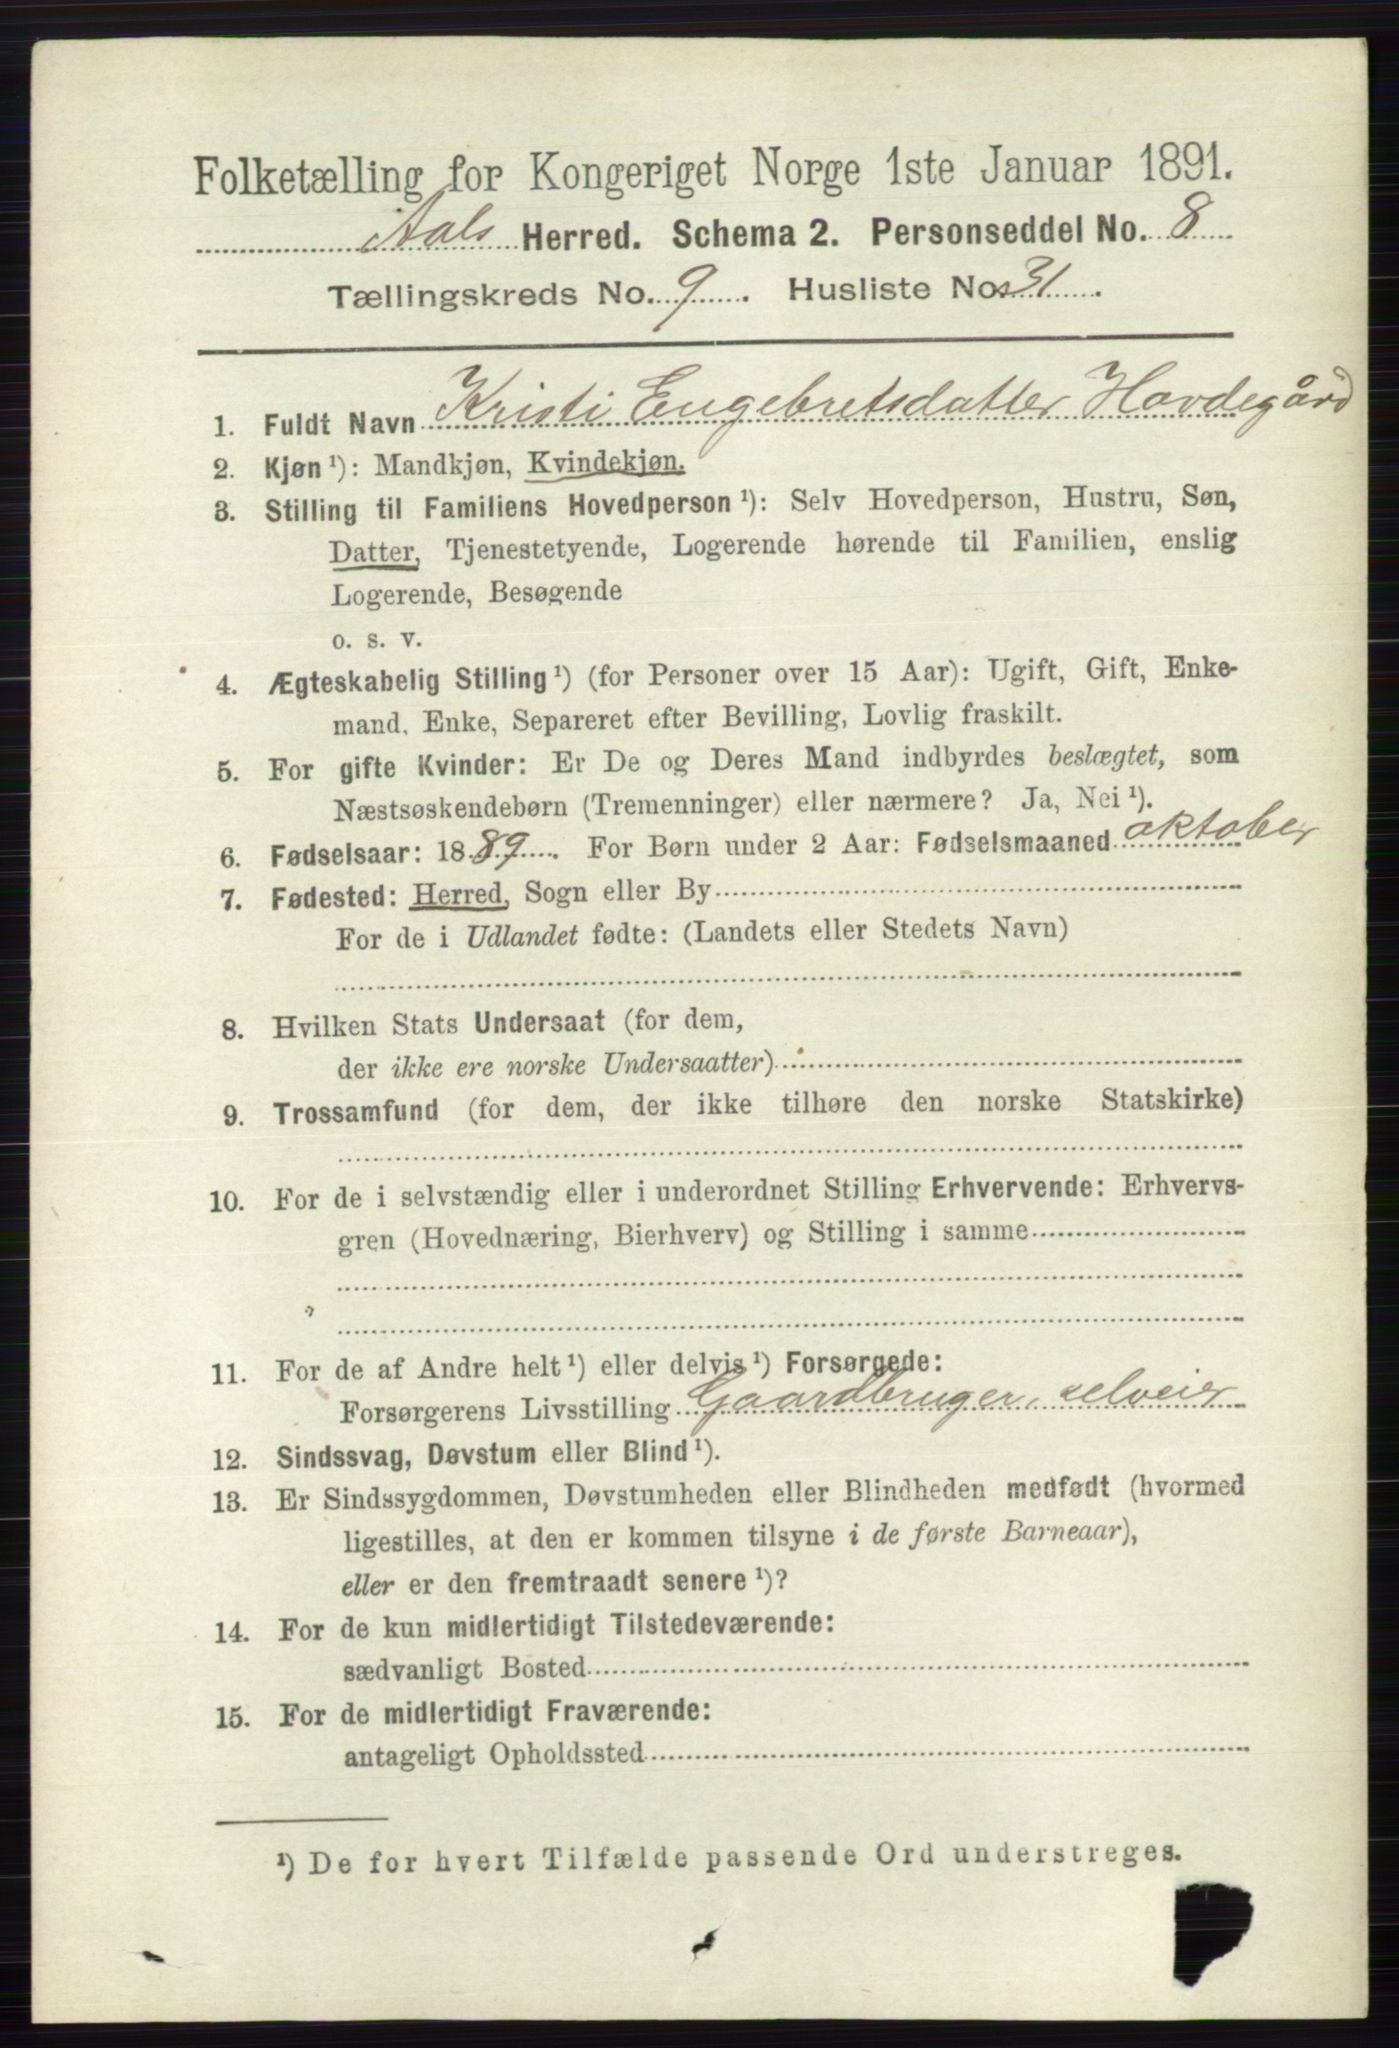 Folketælling for Kongeriget Norge 1ste Januar 1891.
Aals Herred. Schema 2. Personseddel No. 8
Tællingskreds No. 9. Husliste No. 31.
1. Fuldt Navn Kristi Engebretsdatter Hovdegård
2. Kjøn ¹): Mandkjøn, Kvindekjøn.
3. Stilling til Familiens Hovedperson ¹): Selv Hovedperson, Hustru, Søn,
Datter, Tjenestetyende, Logerende hørende til Familien, enslig
Logerende, Besøgende
o. s. v.
4. Ægteskabelig Stilling ¹) (for Personer over 15 Aar): Ugift, Gift, Enke-
mand, Enke, Separeret efter Bevilling, Lovlig fraskilt.
5. For gifte Kvinder: Er De og Deres Mand indbyrdes beslægtet, som
Næstsøskendebørn (Tremenninger) eller nærmere? Ja, Nei ¹).
6. Fødselsaar: 1889. For Børn under 2 Aar: Fødselsmaaned oktober
7. Fødested: Herred, Sogn eller By
For de i Udlandet fødte: (Landets eller Stedets Navn)
8. Hvilken Stats Undersaat (for dem,
der ikke ere norske Undersaatter)
9. Trossamfund (for dem, der ikke tilhøre den norske Statskirke)
10. For de i selvstændig eller i underordnet Stilling Erhvervende: Erhvervs-
gren (Hovednæring, Bierhverv) og Stilling i samme
11. For de af Andre helt ¹) eller delvis ¹) Forsørgede:
Forsørgerens Livsstilling Gaardbruger, selveier
12. Sindssvag, Døvstum eller Blind ¹).
13. Er Sindssygdommen, Døvstumheden eller Blindheden medfødt (hvormed
ligestilles, at den er kommen tilsyne i de første Barneaar),
eller er den fremtraadt senere ¹)?
14. For de kun midlertidigt Tilstedeværende:
sædvanligt Bosted
15. For de midlertidigt Fraværende:
antageligt Opholdssted
¹) De for hvert Tilfælde passende Ord understreges.